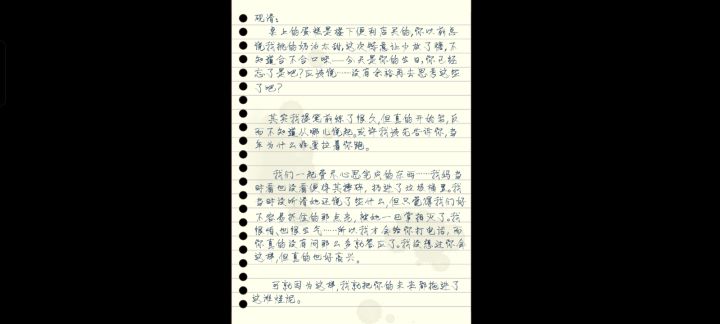 观清：
桌上的蛋糕是楼下便利店买的，你以前总
说我挑的奶油太甜，这次特意让少放了糖，不
知道合不合口味……今天是你的生日，你已经
忘了是吧？应该说……没有余裕再去思考这些
了吧？
其实我提笔前练了很久，但真的开始写，反
而不知道从哪儿说起。或许我该先告诉你，当
年为什么非要拉着你跑。
我们一起费尽心思完成的东西……我妈当
时看也没看便将其撕碎，扔进了垃圾桶里。我
当时没听清她还说了些什么，但只觉得我们好
不容易抓住的那点光，被她一巴掌拍灭了。我
很怕、也很生气……所以我才会给你打电话，而
你真的没有问那么多就答应了。我没想过你会
这样，但真的也好高兴。
可就因为这样，我就把你的未来都拖进了
这滩怪泥。